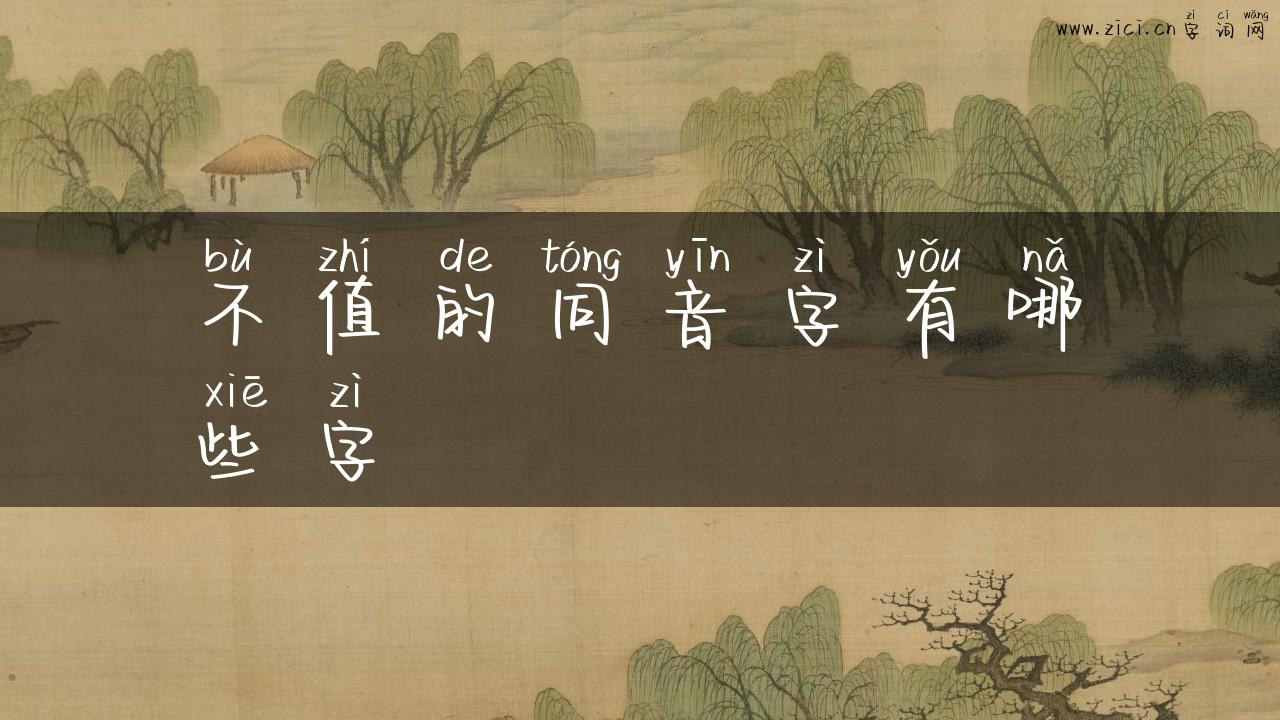 zì cí wǎng
www.zici.cn 字 词 网
bù zhí de tóng yīn zì yǒu nǎ
不 值 的 同 音 字 有 哪
xiē zì
些 字